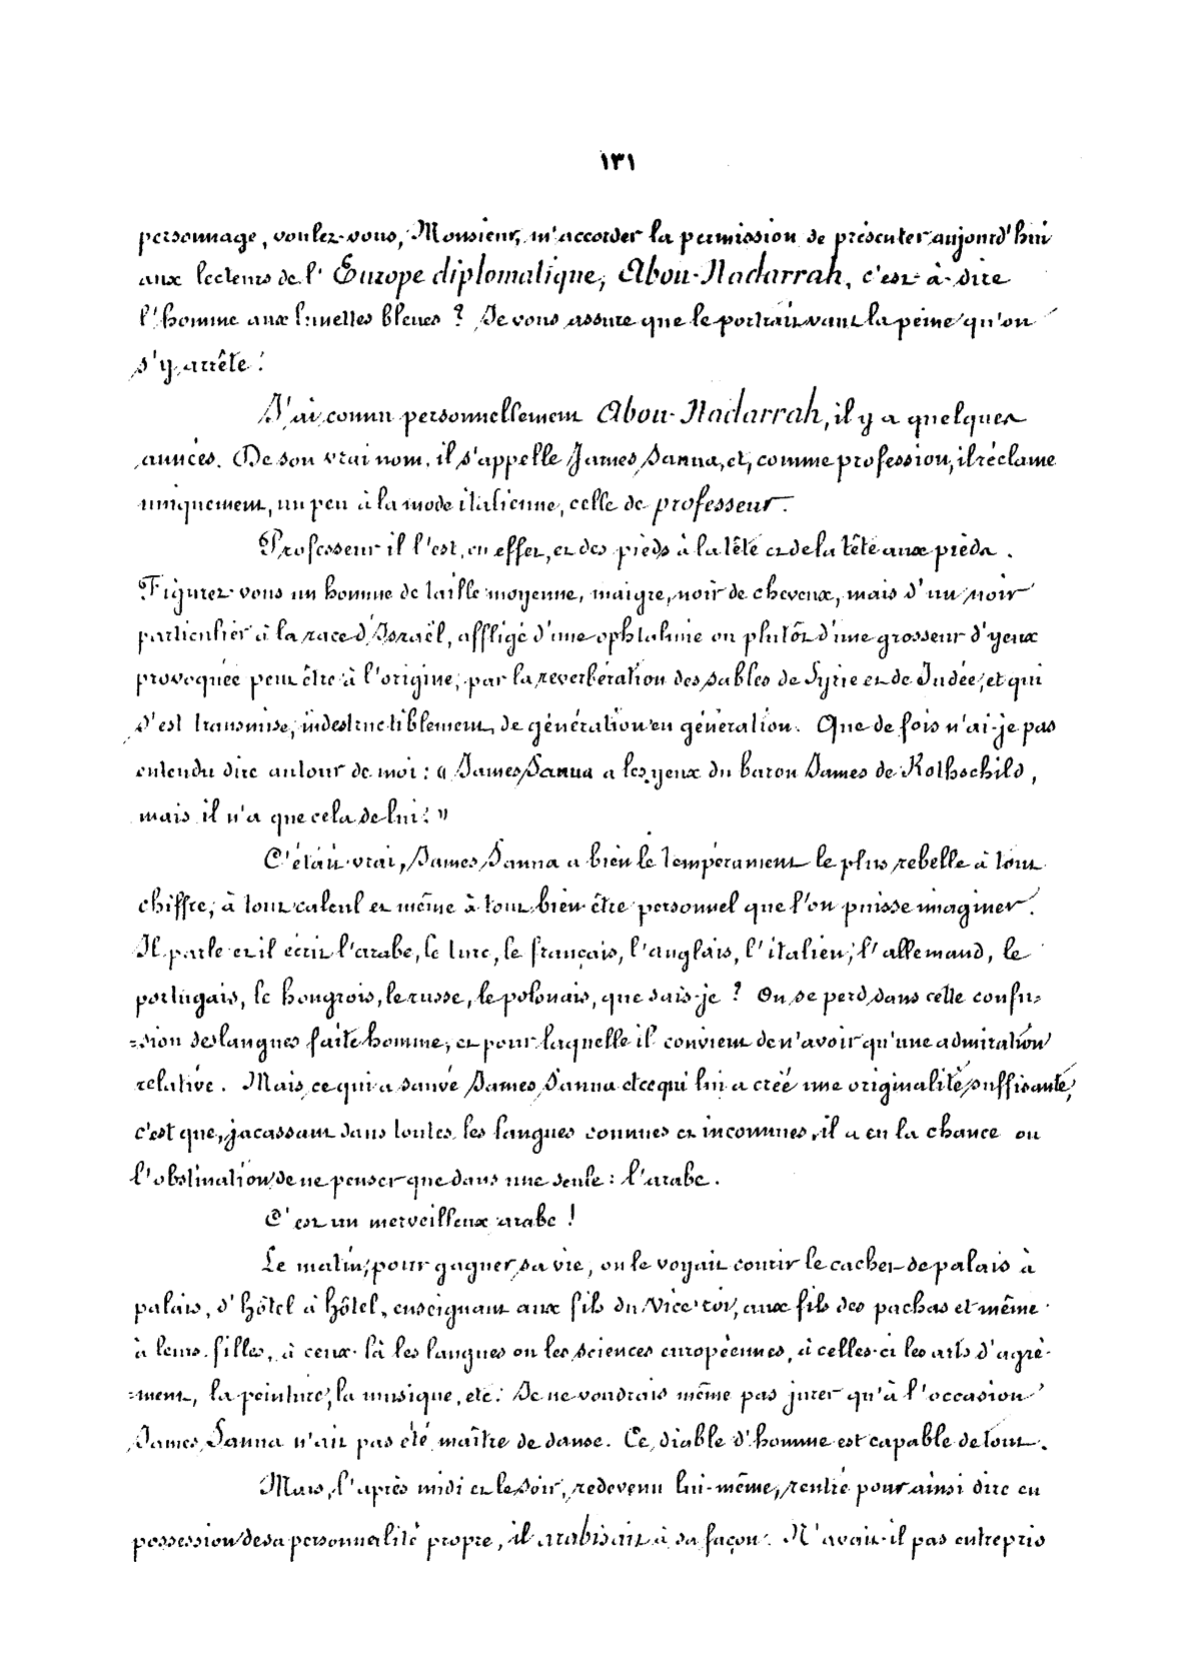 ١٣١
personnage, voulez-vous, Monsieur, m'accorder la permission de présenter aujourd'hui
aux lecteurs de l'Europe diplomatique, Abou-Nadarrah, c'est-à-dire
l'homme aux lunettes bleues ? Je vous assure que le portrait vaut la peine qu'on
s'y arrête !
J'ai connu personnellement Abou-Nadarrah, il y a quelques
années. De son vrai nom, il s'appelle James Sanua, et, comme profession, il réclame
uniquement, un peu à la mode italienne, celle de professeur.
Professeur il l'est, en effet, et des pieds à la tête et de la tête aux pieds.
Figurez-vous un homme de taille moyenne, maigre, noir de cheveux, mais d'un noir
particulier à la race d'Israël, affligé d'une ophtalmie ou plutôt d'une grosseur d'yeux
provoquée peut être à l'origine, par la reverbération des sables de Syrie et de Judée, et qui
s'est transmise, indestructiblement, de génération en génération. Que de fois n'ai-je pas
entendu dire autour de moi : « James Sanua a les yeux du baron James de Rothschild,
mais il n'a que cela de lui ! »
C'était vrai, James Sanua a bien le tempérament le plus rebelle à tout
chiffre, à tout calcul et même à tout bien-être personnel que l'on puisse imaginer.
Il parle et il écrit l'arabe, le turc, le français, l'anglais, l'italien, l'allemand, le
portugais, le hongrois, le russe, le polonais, que sais-je ? On se perd dans cette confu-
=sion des langues faite homme, et pour laquelle il convient de n'avoir qu'une admiration
relative. Mais ce qui a sauvé James Sanua et ce qui lui a créé une originalité suffisante,
c'est que, jacassant dans toutes les langues connues et inconnues, il a eu la chance ou
l'obstination de ne penser que dans une seule : l'arabe.
C'est un merveilleux arabe !
Le matin, pour gagner sa vie, on le voyait courir le cachet de palais à
palais, d'hôtel à hôtel, enseignant aux fils du Vice-roi, aux fils des pachas et même
à leurs filles, à ceux-là les langues ou les sciences européennes, à celles-ci les arts d'agré-
=ment, la peinture, la musique, etc. Je ne voudrais même pas jurer qu'à l'occasion
James Sanua n'ait pas été maître de danse. Ce diable d'homme est capable de tout.
Mais, l'après midi et le soir, redevenu lui-même, rentré pour ainsi dire en
possession de sa personnalité propre, il arabisait à sa façon. N'avait-il pas entrepris